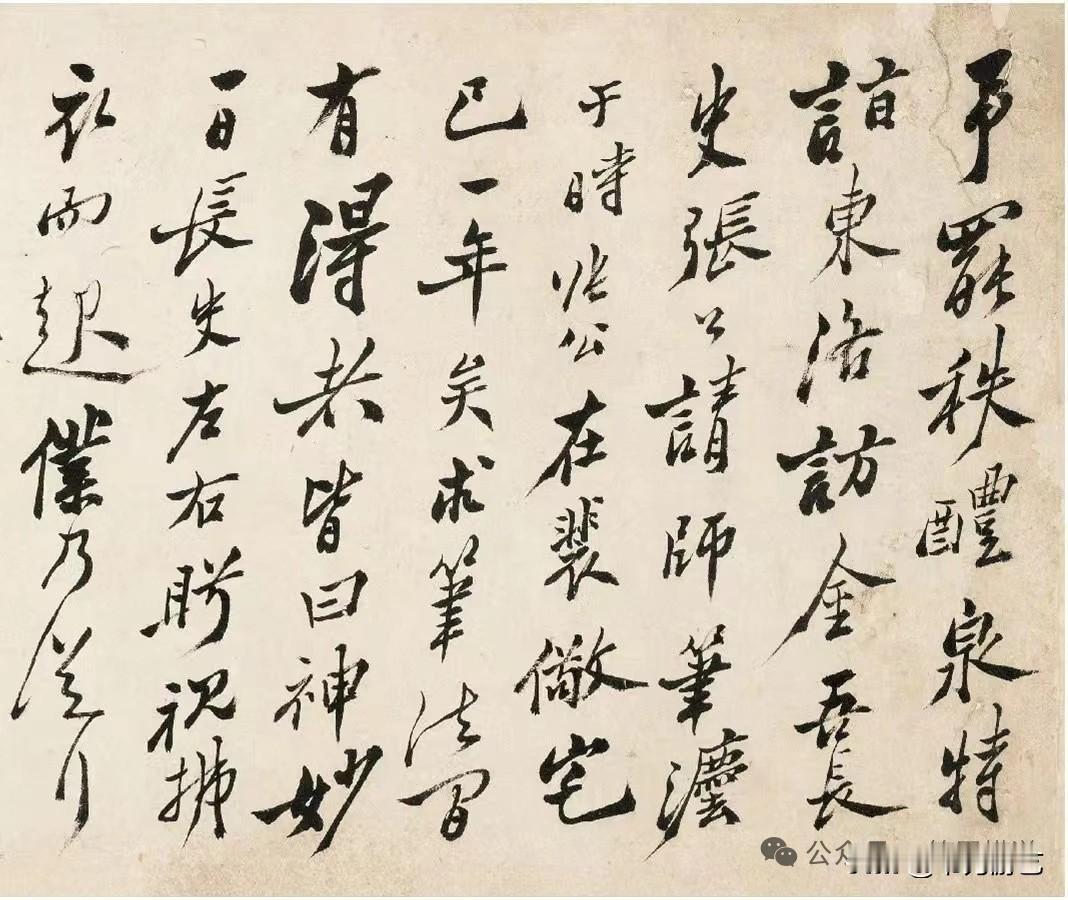 予罷秩醴泉特
詣東洛訪金吾長
史張公請師筆灋
于時張公在裴儆宅
已一年矣求筆法間
有得者皆曰神妙
一日長史左右眄視拂
衣而起僕乃從行
公众